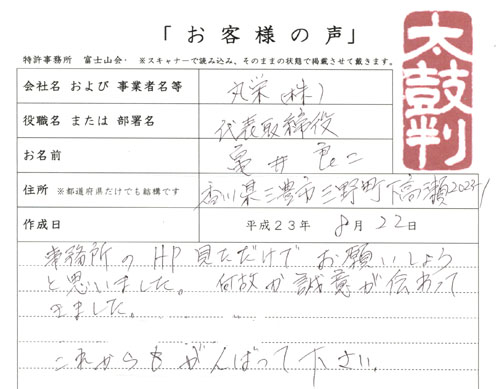 「お客様の声」
特許事務所 富士山会・ ※スキャナーで読み込み、そのままの状態で掲載させて戴きます。
太鼓判
会社名 および 事業者名等 丸栄(株)
役職名 または 部署名 代表取締役
お名前 亀井 良二
住所 ※都道府県だけでも結構です 香川県三豊市三野町下高瀬2023-1
作成日 平成23年 8月 22日
事務所のHP見ただけで お願いしよう
と思いました。 何故か誠意が伝わって
きました。
これからもがんばって下さい。